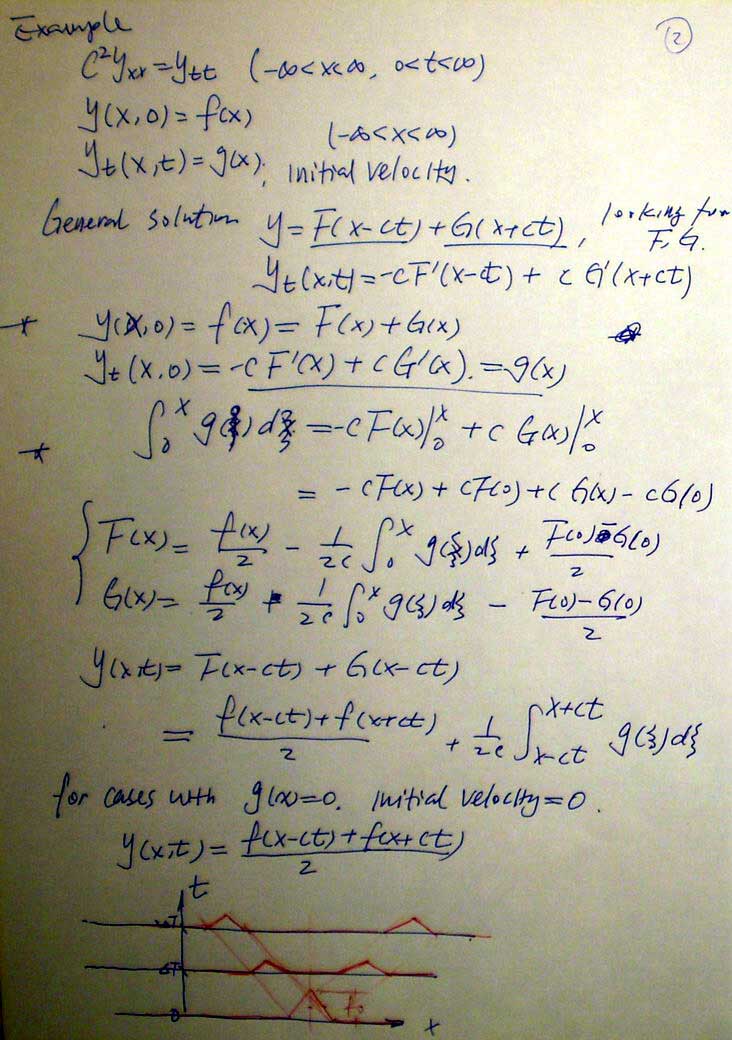 Example
②
C²y_xx = y_tt (-∞<x<∞, 0<t<∞)
y(x,0) = f(x)
(-∞<x<∞)
y_t(x,t) = g(x), initial velocity.
General solution y = F(x-ct) + G(x+ct), looking for F, G.
y_t(x,t) = -cF'(x-ct) + cG'(x+ct)
y(x,0) = f(x) = F(x) + G(x)
y_t(x,0) = -cF'(x) + cG'(x). = g(x)
∫₀ˣ g(ξ)dξ = -cF(x)|₀ˣ + cG(x)|₀ˣ
= -cF(x) + cF(0) + cG(x) - cG(0)
F(x) = f(x)/2 - 1/2c ∫₀ˣ g(ξ)dξ + F(0)-G(0)/2
G(x) = f(x)/2 + 1/2c ∫₀ˣ g(ξ)dξ - F(0)-G(0)/2
y(x,t) = F(x-ct) + G(x-ct)
= f(x-ct)+f(x+ct)/2 + 1/2c ∫_{x-ct}^{x+ct} g(ξ)dξ
for cases with g(x)=0. initial velocity=0.
y(x,t) = f(x-ct)+f(x+ct)/2
t
0
x